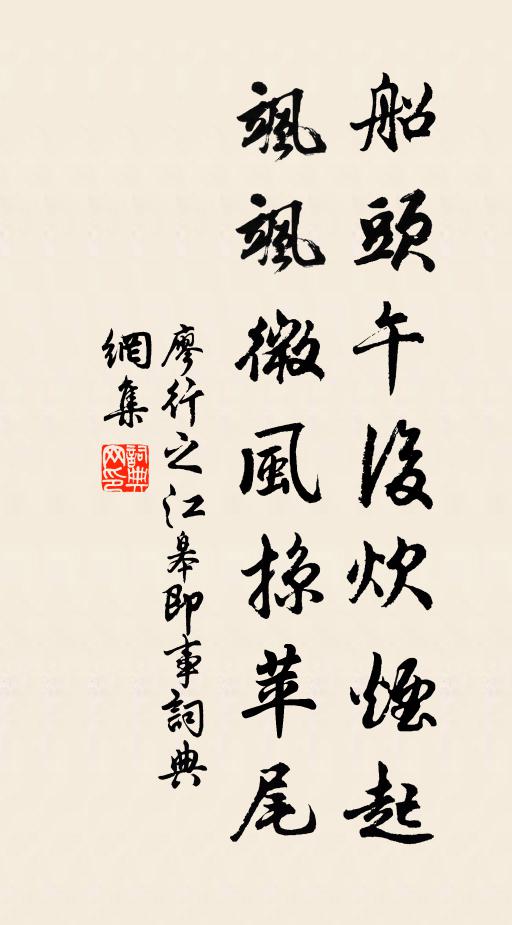 船頭午後炊煙起
颯颯微風掠苹尾
廖行之江皋即事詞典
網集
詞典
网印